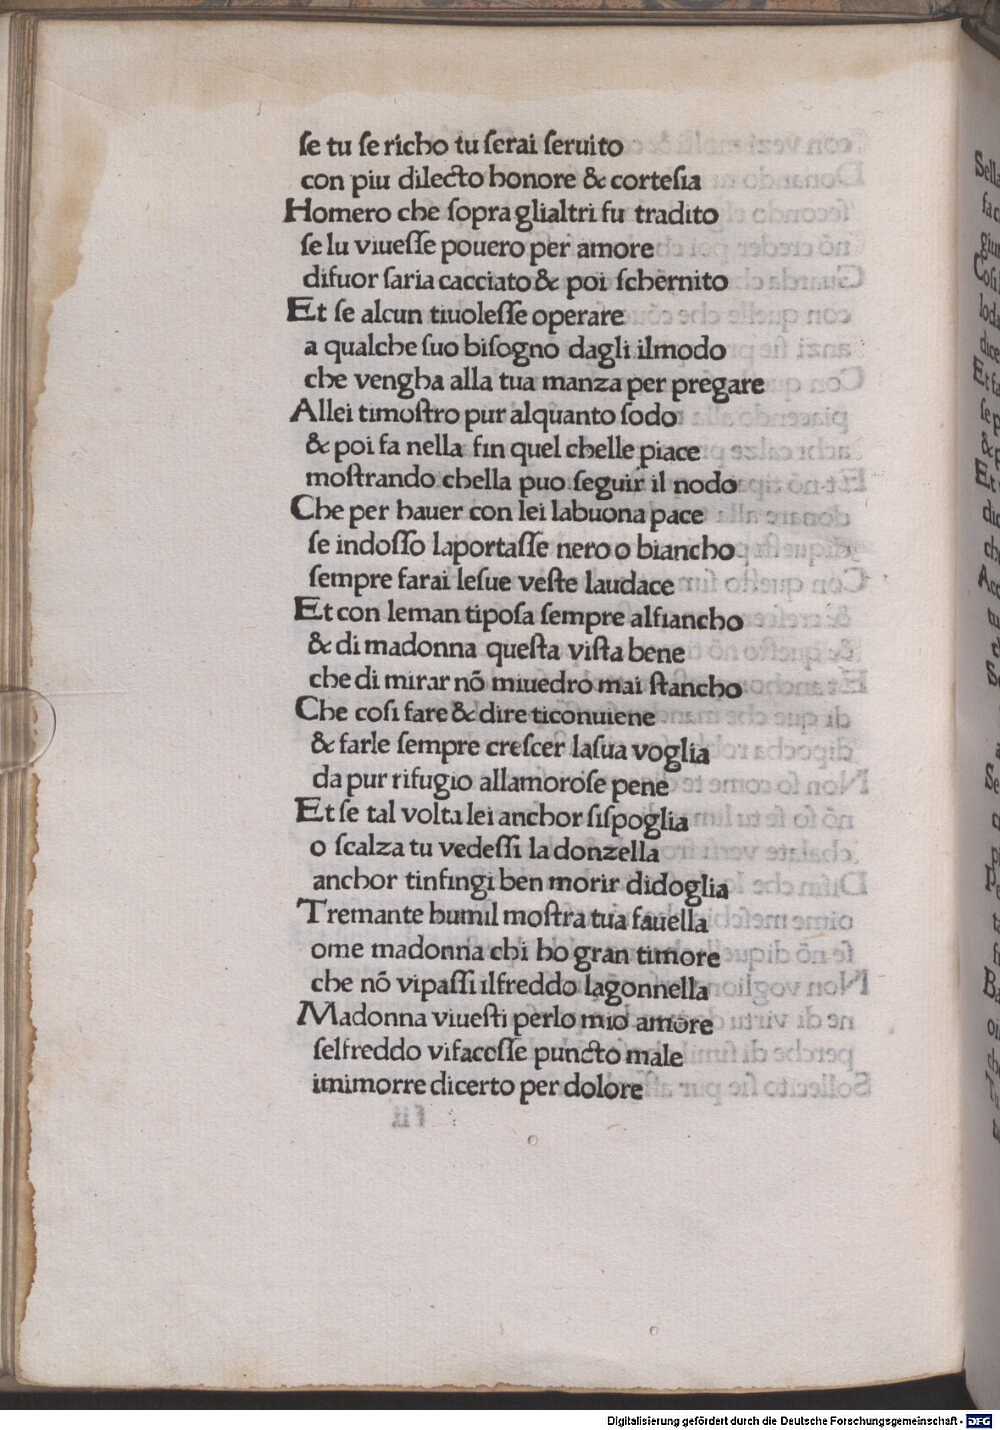 ſe tu ſe richo tu ſerai ſeruito
con piu dilecto honore & corteſia
Homero che ſopra glialtri fu tradito
ſe lu viueſſe pouero per amore
difuor ſaria cacciato & poi ſchernito
Et ſe alcun tiuoleſſe operare
a qualche ſuo biſogno dagli ilmodo
che vengha alla tua manza per pregare
Allei timoſtro pur alquanto ſodo
& poi fa nella fin quel chelle piace
moſtrando chella puo ſeguir il nodo
Che per hauer con lei labuona pace
ſe indoſſo laportaſſe nero o biancho
ſempre farai leſue veſte laudace
Et con leman tipoſa ſempre alfiancho
& di madonna queſta viſta bene
che di mirar nõ miuedro mai ſtancho
Che coſi fare & dire ticonuiene
& farle ſempre creſcer laſua voglia
da pur rifugio allamoroſe pene
Et ſe tal volta lei anchor ſiſpoglia
o ſcalza tu vedeſſi la donzella
anchor tinfingi ben morir didoglia
Tremante humil moſtra tua fauella
ome madonna chi ho gran timore
che nõ vipaſſi ilfreddo lagonnella
Madonna viueſti perlo mio amore
ſelfreddo vifaceſſe puncto male
imimorre dicerto per dolore
Digitalisierung gefördert durch die Deutsche Forschungsgemeinschaft - DFG